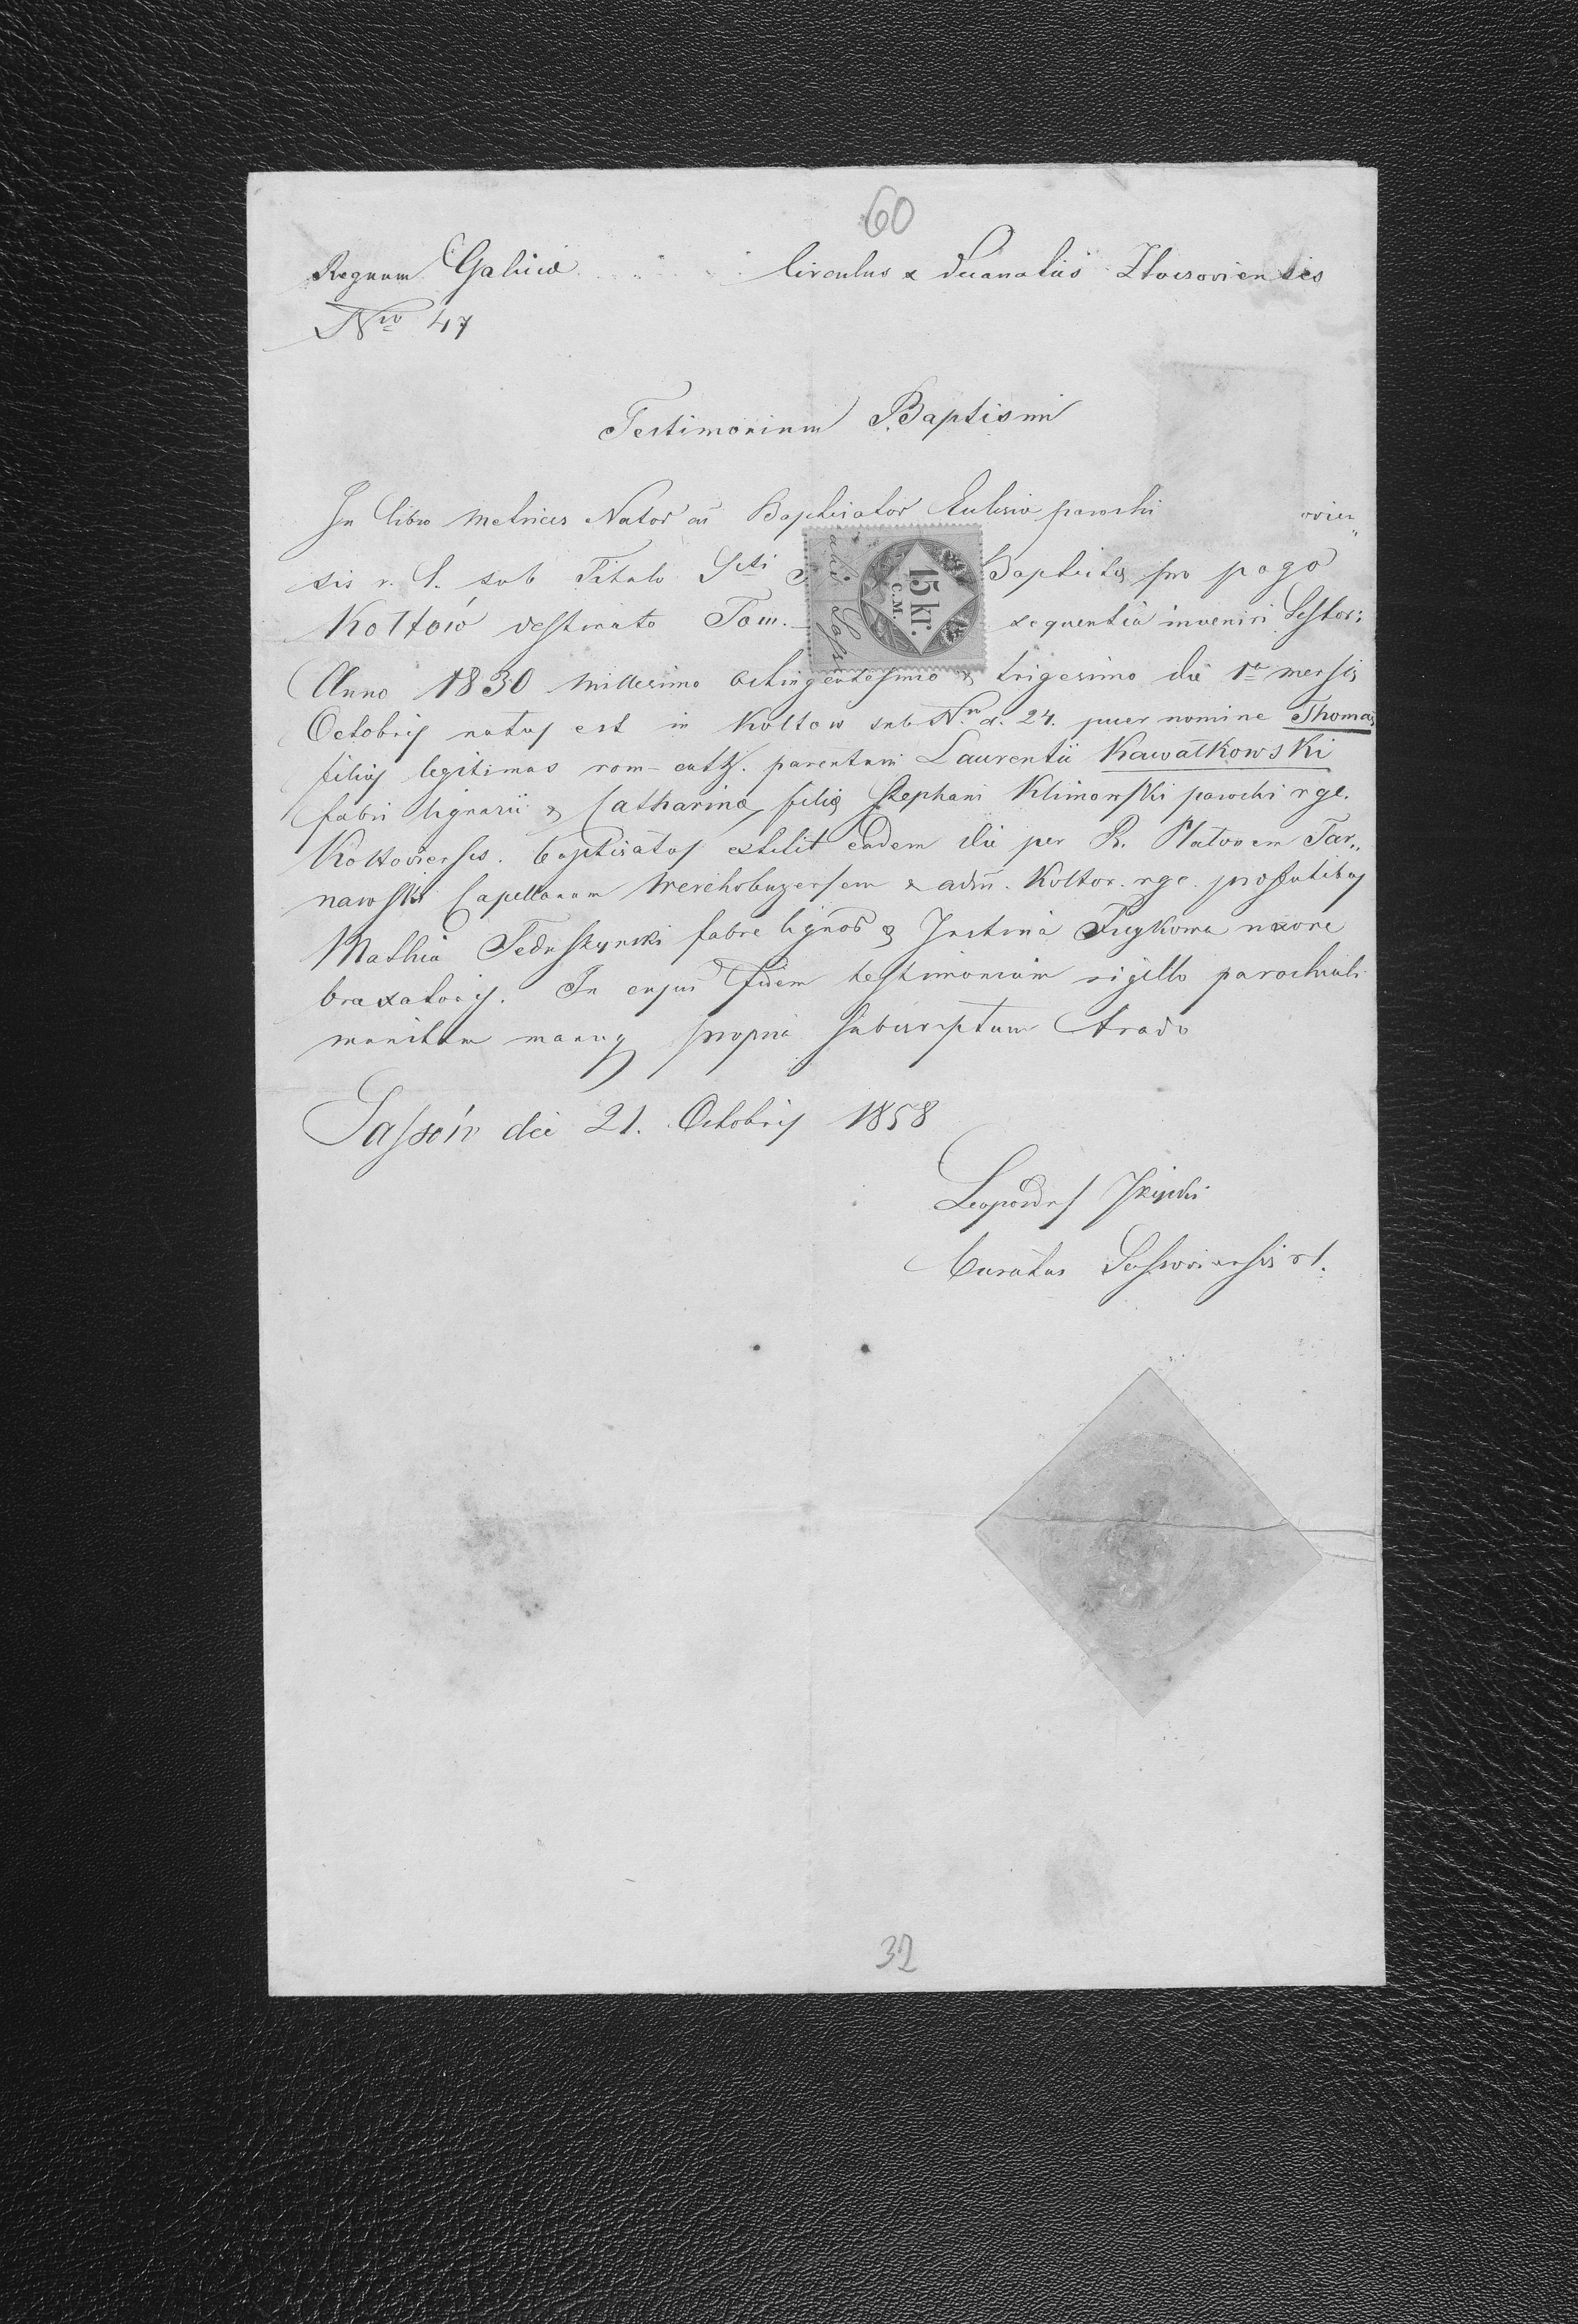 60
Regnum Galiciæ Circulus & Decanatus Zloczoviensis
Nro 47
Testimonium Baptismi
In libro Metrices Nator ac Baptisator Ecclesiæ parochi ovien„
sis r. l. sub Titulo Scti Baptistæ pro pago
Kołtów destinato Tom. sequentia inveniri testor:
15 kr.
C.M.
Anno 1830 Millesimo Octingentesimo & trigesimo die 1a mensis
Octobris natus est in Kołtow sub Nro d. 24. puer nomine Thomas
filius legitimus rom-cath. parentum Laurentii Kawałkowski
fabri lignarii & Catharinæ, filiæ Stephani Klimowski parochi rgc.
Koltoviensis. baptisatus extitit eadem die per R. Platonem Tar„
nawski Capellanum Werchobuzensem & adm. Koltov. rgc.
Mathia fabro lignar & Justina uxore
braxatoris. In cujus fidem testimonium sigillo parochiali
munitum manu propria subscriptum trado
Sassów die 21. Octobris 1858
Leopoldus
Curatus Sassoviensis r l.
32